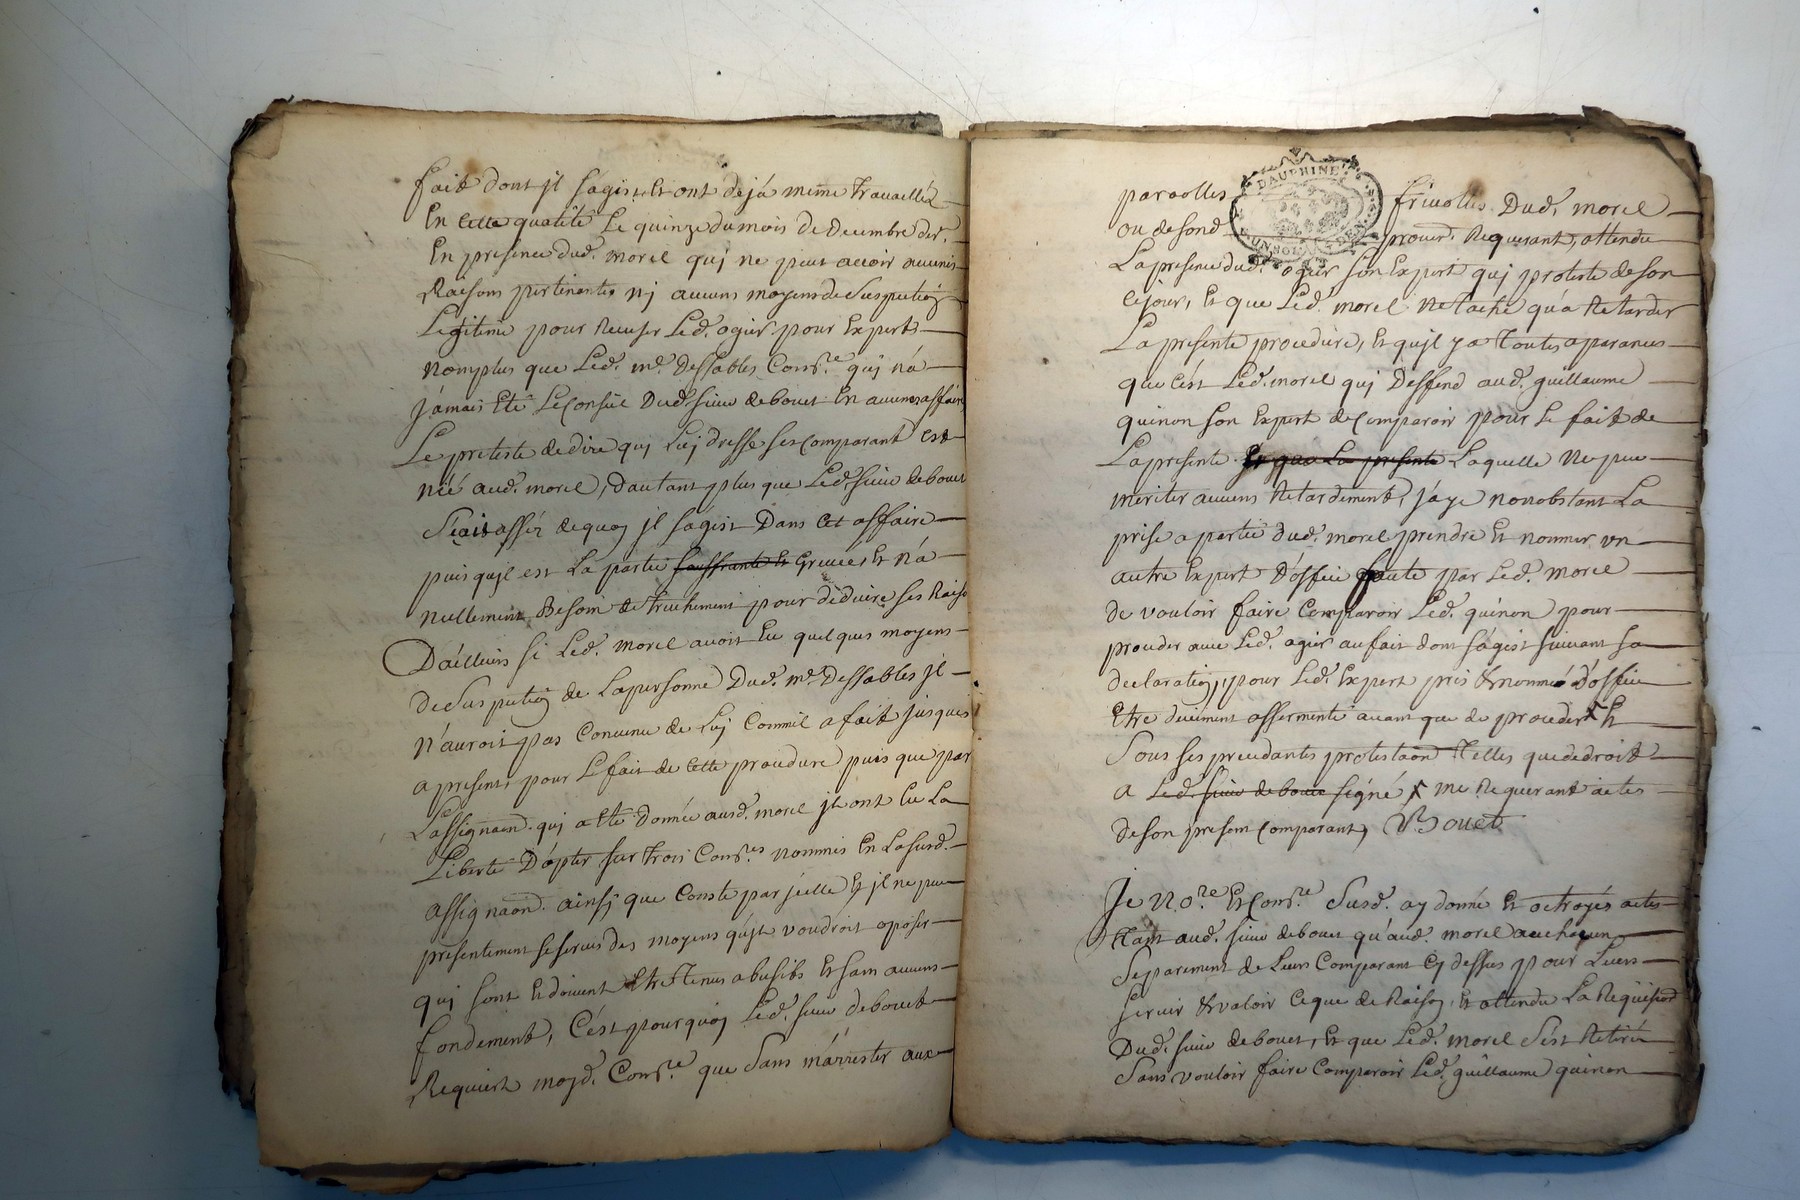 fait dont jl sagist et ont deja meme travaillés
En cette qualité Le quinze du mois de decembre der.
En presence dud. morel quj ne peut avoir aucunes
Raisons pertinantes nj aucuns moyens de Suspection
Legitime pour Recuser Led. ogier pour Expert
nomplus que Led. me. dessables Comre. quj n'a
jámais Eté Le Conseil Dud. sieur debouet En aucunes affaires
Le preteste de dire quj luj dresse ses comparant est
nié aud. morel, dautant plus que Led. sieur debouet
Scait assés dequoy jl sagist Dans cet affaire
puis qujl est La partie souffrante et Greuée, et n'a
nullement Besoin de truchement pour deduire ses Raisons
D'ailleurs si Led. morel avoit Eu quelques moyens
de Suspection de La personne Dud. me. Dessables jl
n'auroit pas Convenu de Luj Comme il a fait jusques
a present, pour Le fait de cette procedure puis que par
L'assignaõn. quj a Eté donnée aud. morel jl ont Eu La
Liberté D'opter sur trois Comres. nommés En La susd.
assignaõn. ainsj que Conste par jcelle Et jl ne peu
presentement se servir des moyens qu'jl voudroit oposer
quj sont Et doivent Etre tenus abusibs Et sam aucuns
fondement, C'est pourquoy Led. sieur debouet
Requiert moyd. Comre. que Sans m'arrester aux
parolles frivolles Dud. morel
ou de sond proced. Requerant, attendu
La presence dud. ogier son Expert quj proteste de son
sejour, Et que Led. morel ne tache qu'a Retarder
La presente procedure, Et qujl y a Toutes aparances
que c'est Led. morel quj Deffend aud. guillaume
quinon son Expert de Comparoir pour Le fait de
La presente Et que La presente Laquelle ne peu
meriter aucuns Retardement, j'aye nonobstant La
prise a partie dud. morel prendre Et nommer un
autre Expert D'office faute par Led. morel
de vouloir faire Comparoir Led. quinon pour
proceder avec Led. ogier au fait dont s'agist suivant sa
declaration, pour Led. Expert pris & nommé d'office
Etre deuëment assermenté avant que de proceder Et
Sous ses precedantes protestaõn Telles que de droit
A Led. sieur debouet signé me Requerant actes
de son presem comparant, Bouet
Je Nore. Et Comre. Susd. ay donné Et octroyés actes
Tant aud. sieur debouet qu'aud. morel a un chacun
Separement de Leurs Comparant Cy dessus pour Leurs
servir & valoir ce que de Raison, Et attendu La Requisiõn
Dud. sieur debouet, Et que Led. morel S'est Retiré
Sans vouloir faire Comparoir Led. guillaume quinon
DAUPHINÉ